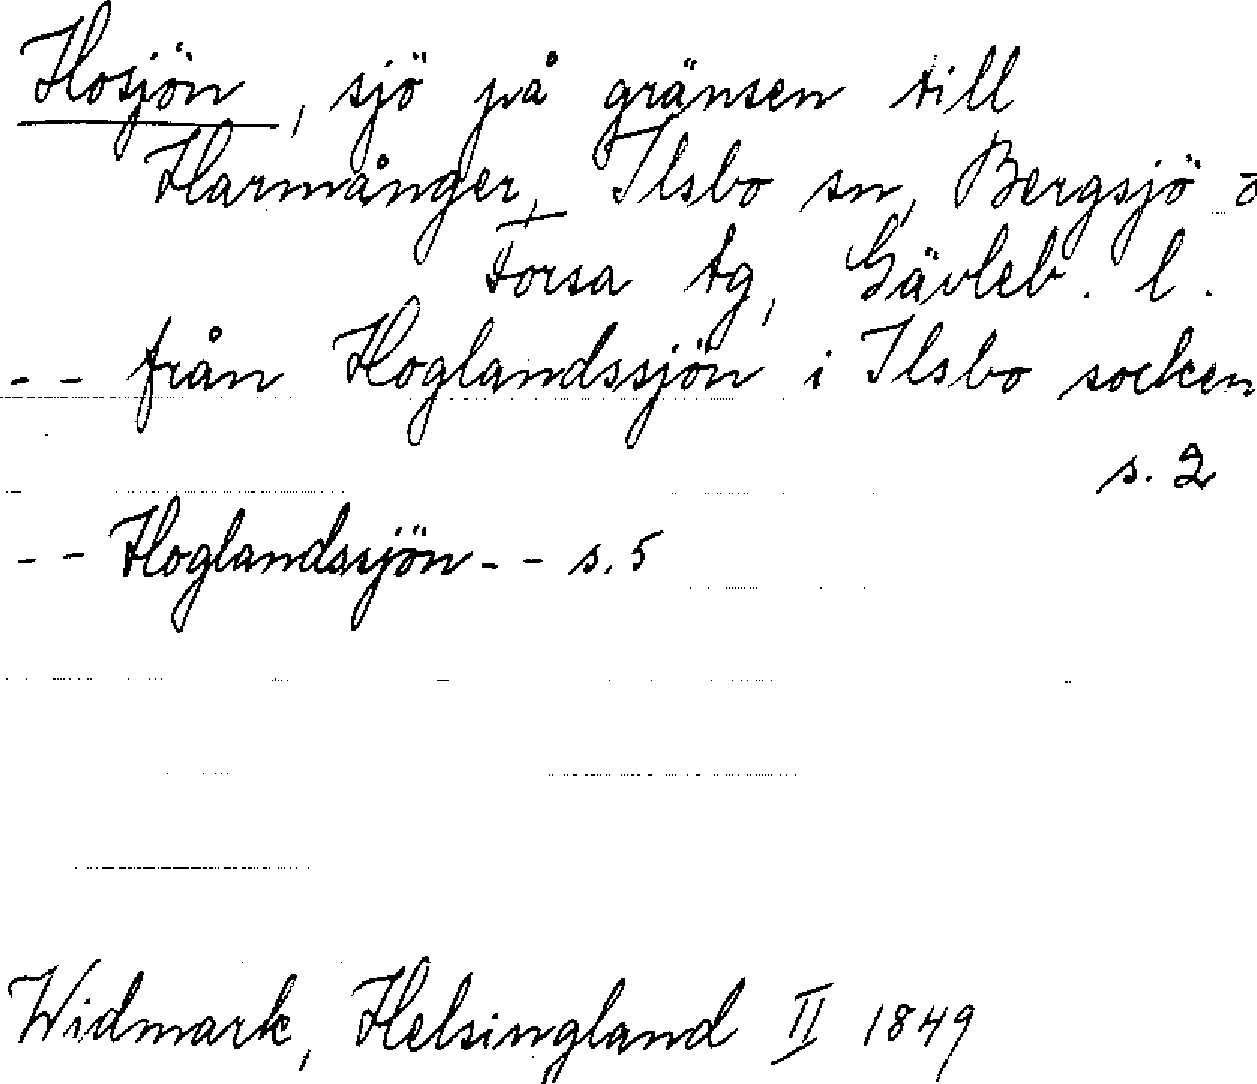 Hosjön, sjö på gränsen till
Harmånger, Ilsbo sn, Bergsjö o
Forsa tg, Gävleb. l.
- - från Hoglandssjön i Ilsbo socken
s. 2
- - Hoglandssjön - - s. 5
Widmark, Helsingland II 1849